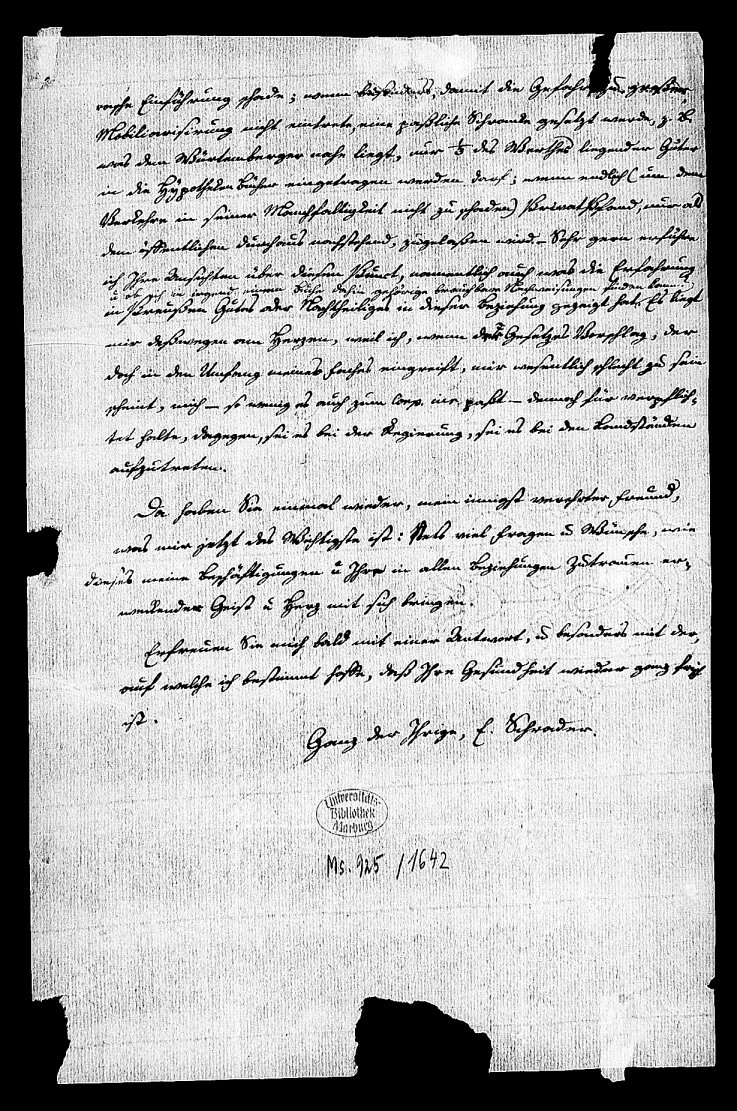 rasche Einführung schade; wenn besonders, damit die Gefahr zu großer
Mobiliarisirung nicht eintrete, eine paßliche Schranke gesetzt werde, z. B.
was dem Würtemberger nahe liegt, nur 1/3 des Werthes liegender Güter
in die Hypotheken Bücher eingetragen werden darf; wenn endlich (um dem
Verkehre in seiner Manchfaltigkeit nicht zu schaden) Privatpfand, nur als
dem öffentlichen durchaus nachstehend, zugelaßen wird. – Sehr gern erführe
ich Ihre Ansichten über diesen Punct, namentlich auch was die Erfahrung
u. ob ich in irgend einem Buche dahin gehörige brauchbare Nachweisungen finden könnte
in Preußen Gutes oder Nachtheiliges in dieser Beziehung gezeigt hat. Es liegt
mir deßwegen am Herzen, weil ich, wenn der Gesetzes Vorschlag, der
doch in den Umfang meines Faches eingreift, mir wesentlich schlecht zu sein
scheint, mich – so wenig es auch zum corp. me. paßt – dennoch für verpflich-
tet halte, dagegen, sei es bei der Regierung, sei es bei den Landständen
aufzutreten.
Da haben Sie einmal wieder, mein innigst verehrter Freund,
was mir jetzt das Wichtigste ist: stets viel Fragen u Wünsche, wie
dieses meine Beschäftigungen u Ihr in allen Beziehungen Zutrauen er-
weckender Geist u Herz mit sich bringen.
Erfreuen Sie mich bald mit einer Antwort, u besonders mit der,
auf welche ich bestimmt hoffe, daß Ihre Gesundheit wieder ganz frisch
ist.
Ganz der Ihrige, E. Schrader.
Universitäts
Bibliothek
Marburg
Ms. 925 / 1642